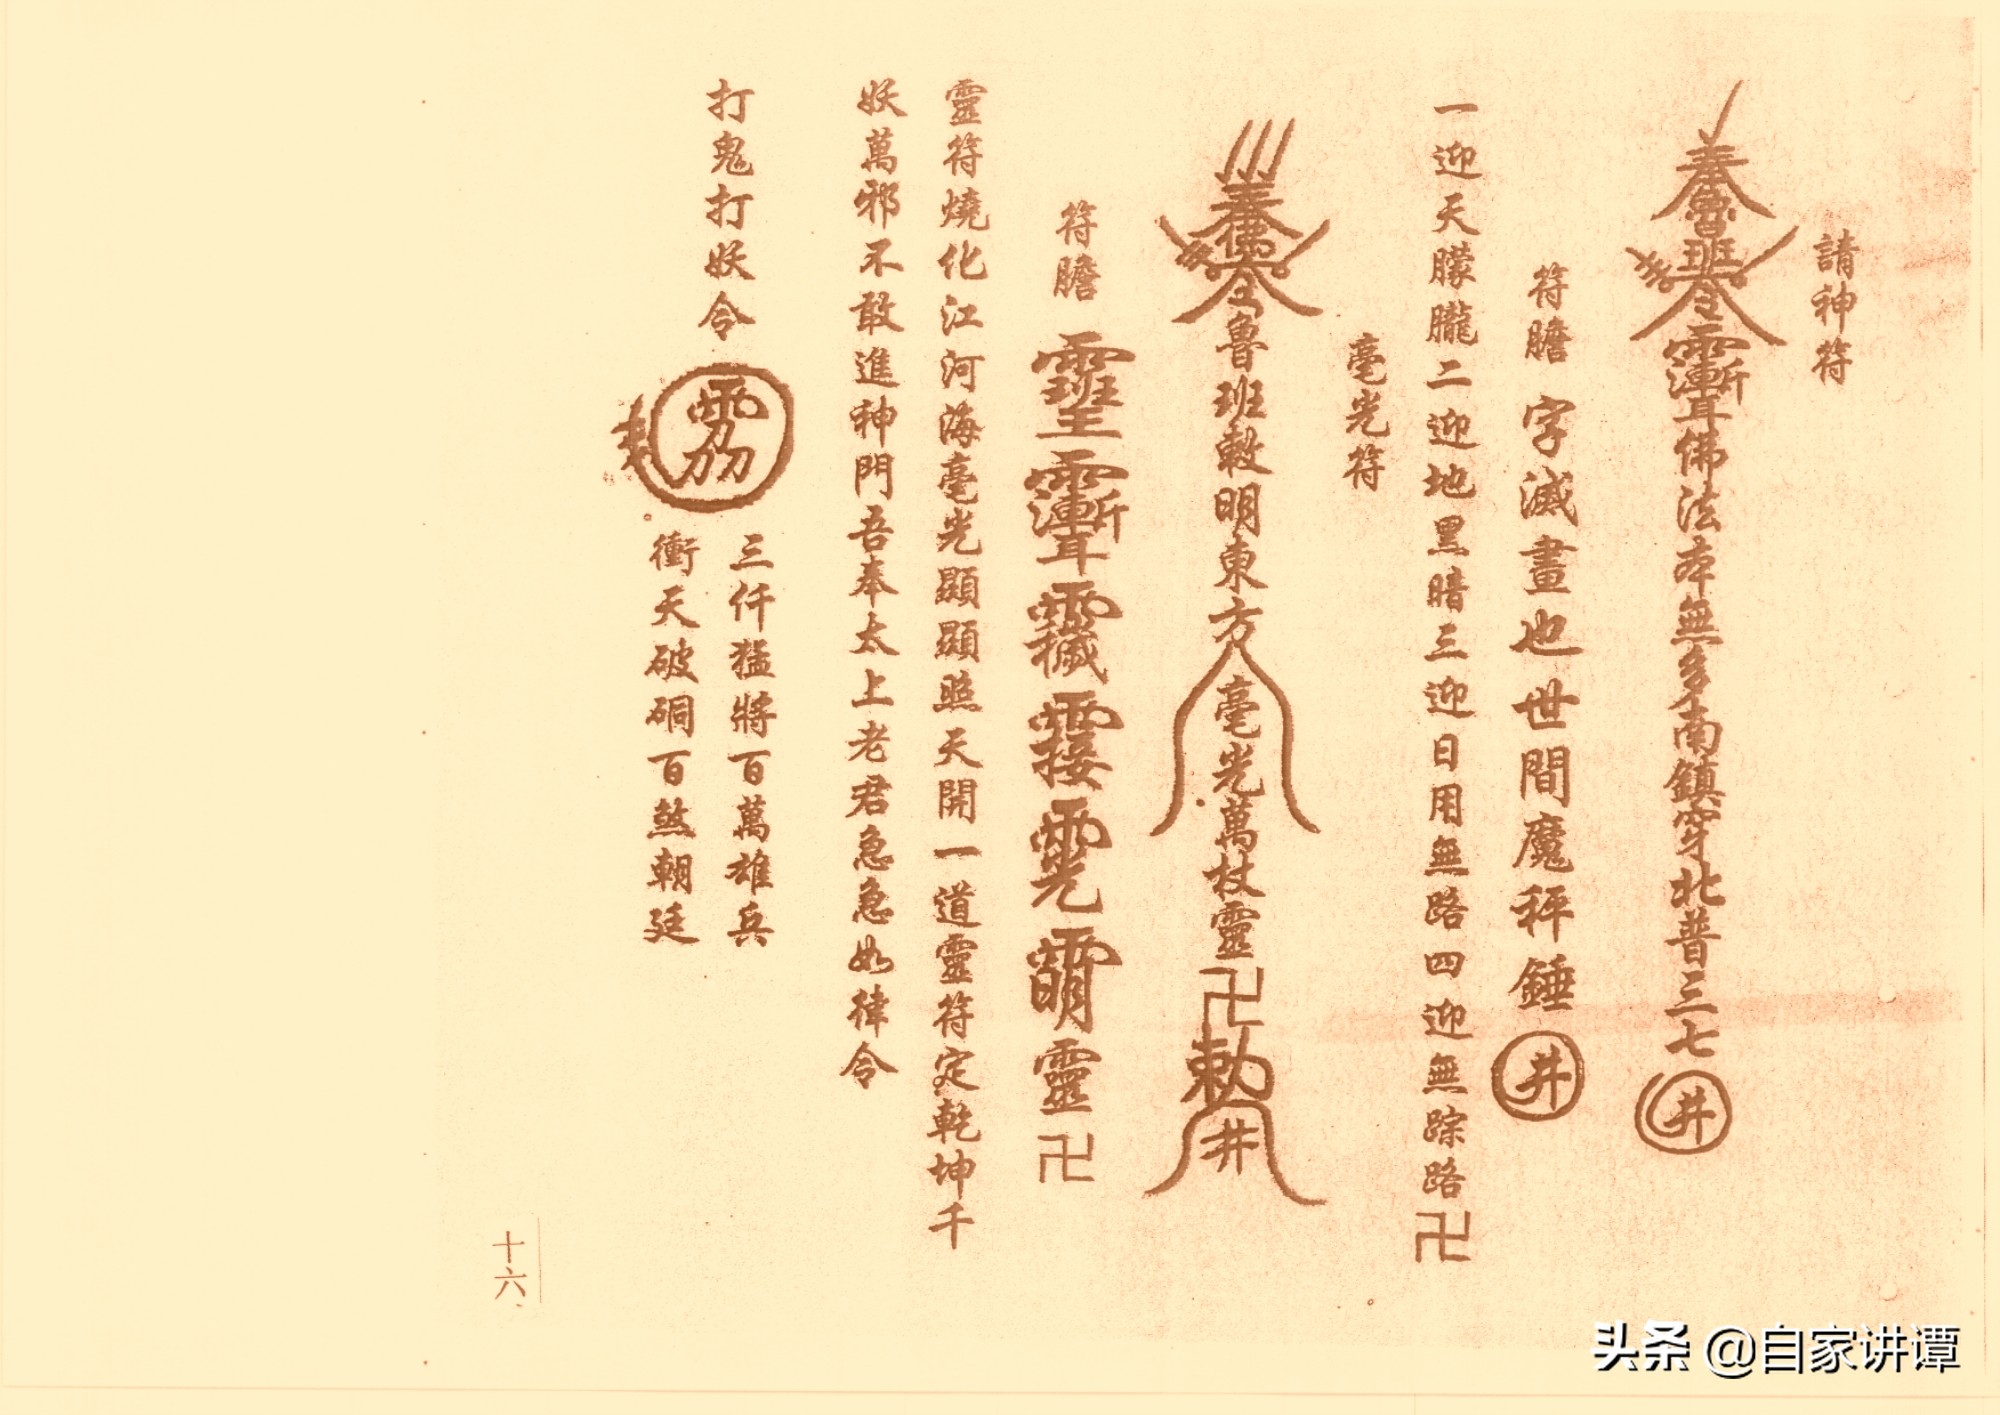 請神符
奉魯班令
佛法本無多南鎮穿北普三七井
符膽
字滅畫也世間魔秤錘井
一迎天朦朧二迎地黑暗三迎日用無路四迎無踪路卍
毫光符
奉佛令魯班敕明東方毫光萬杖靈卍勅井
符膽
靈卍
靈符燒化江河海毫光顯顯照天開一道靈符定乾坤千
妖萬邪不敢進神門吾奉太上老君急急如律令
打鬼打妖令
三仟猛將百萬雄兵
衝天破硐百煞朝廷
十六
头条 @自家讲谭